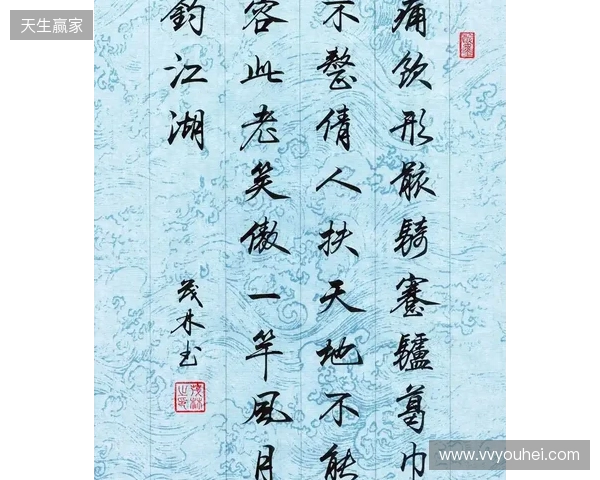 天生赢家
痛飲形骸騎蹇驢葛巾
不整倩人扶天地不能
容此老笑傲一竿風月
釣江湖
茂林书
www.vvyouhei.com